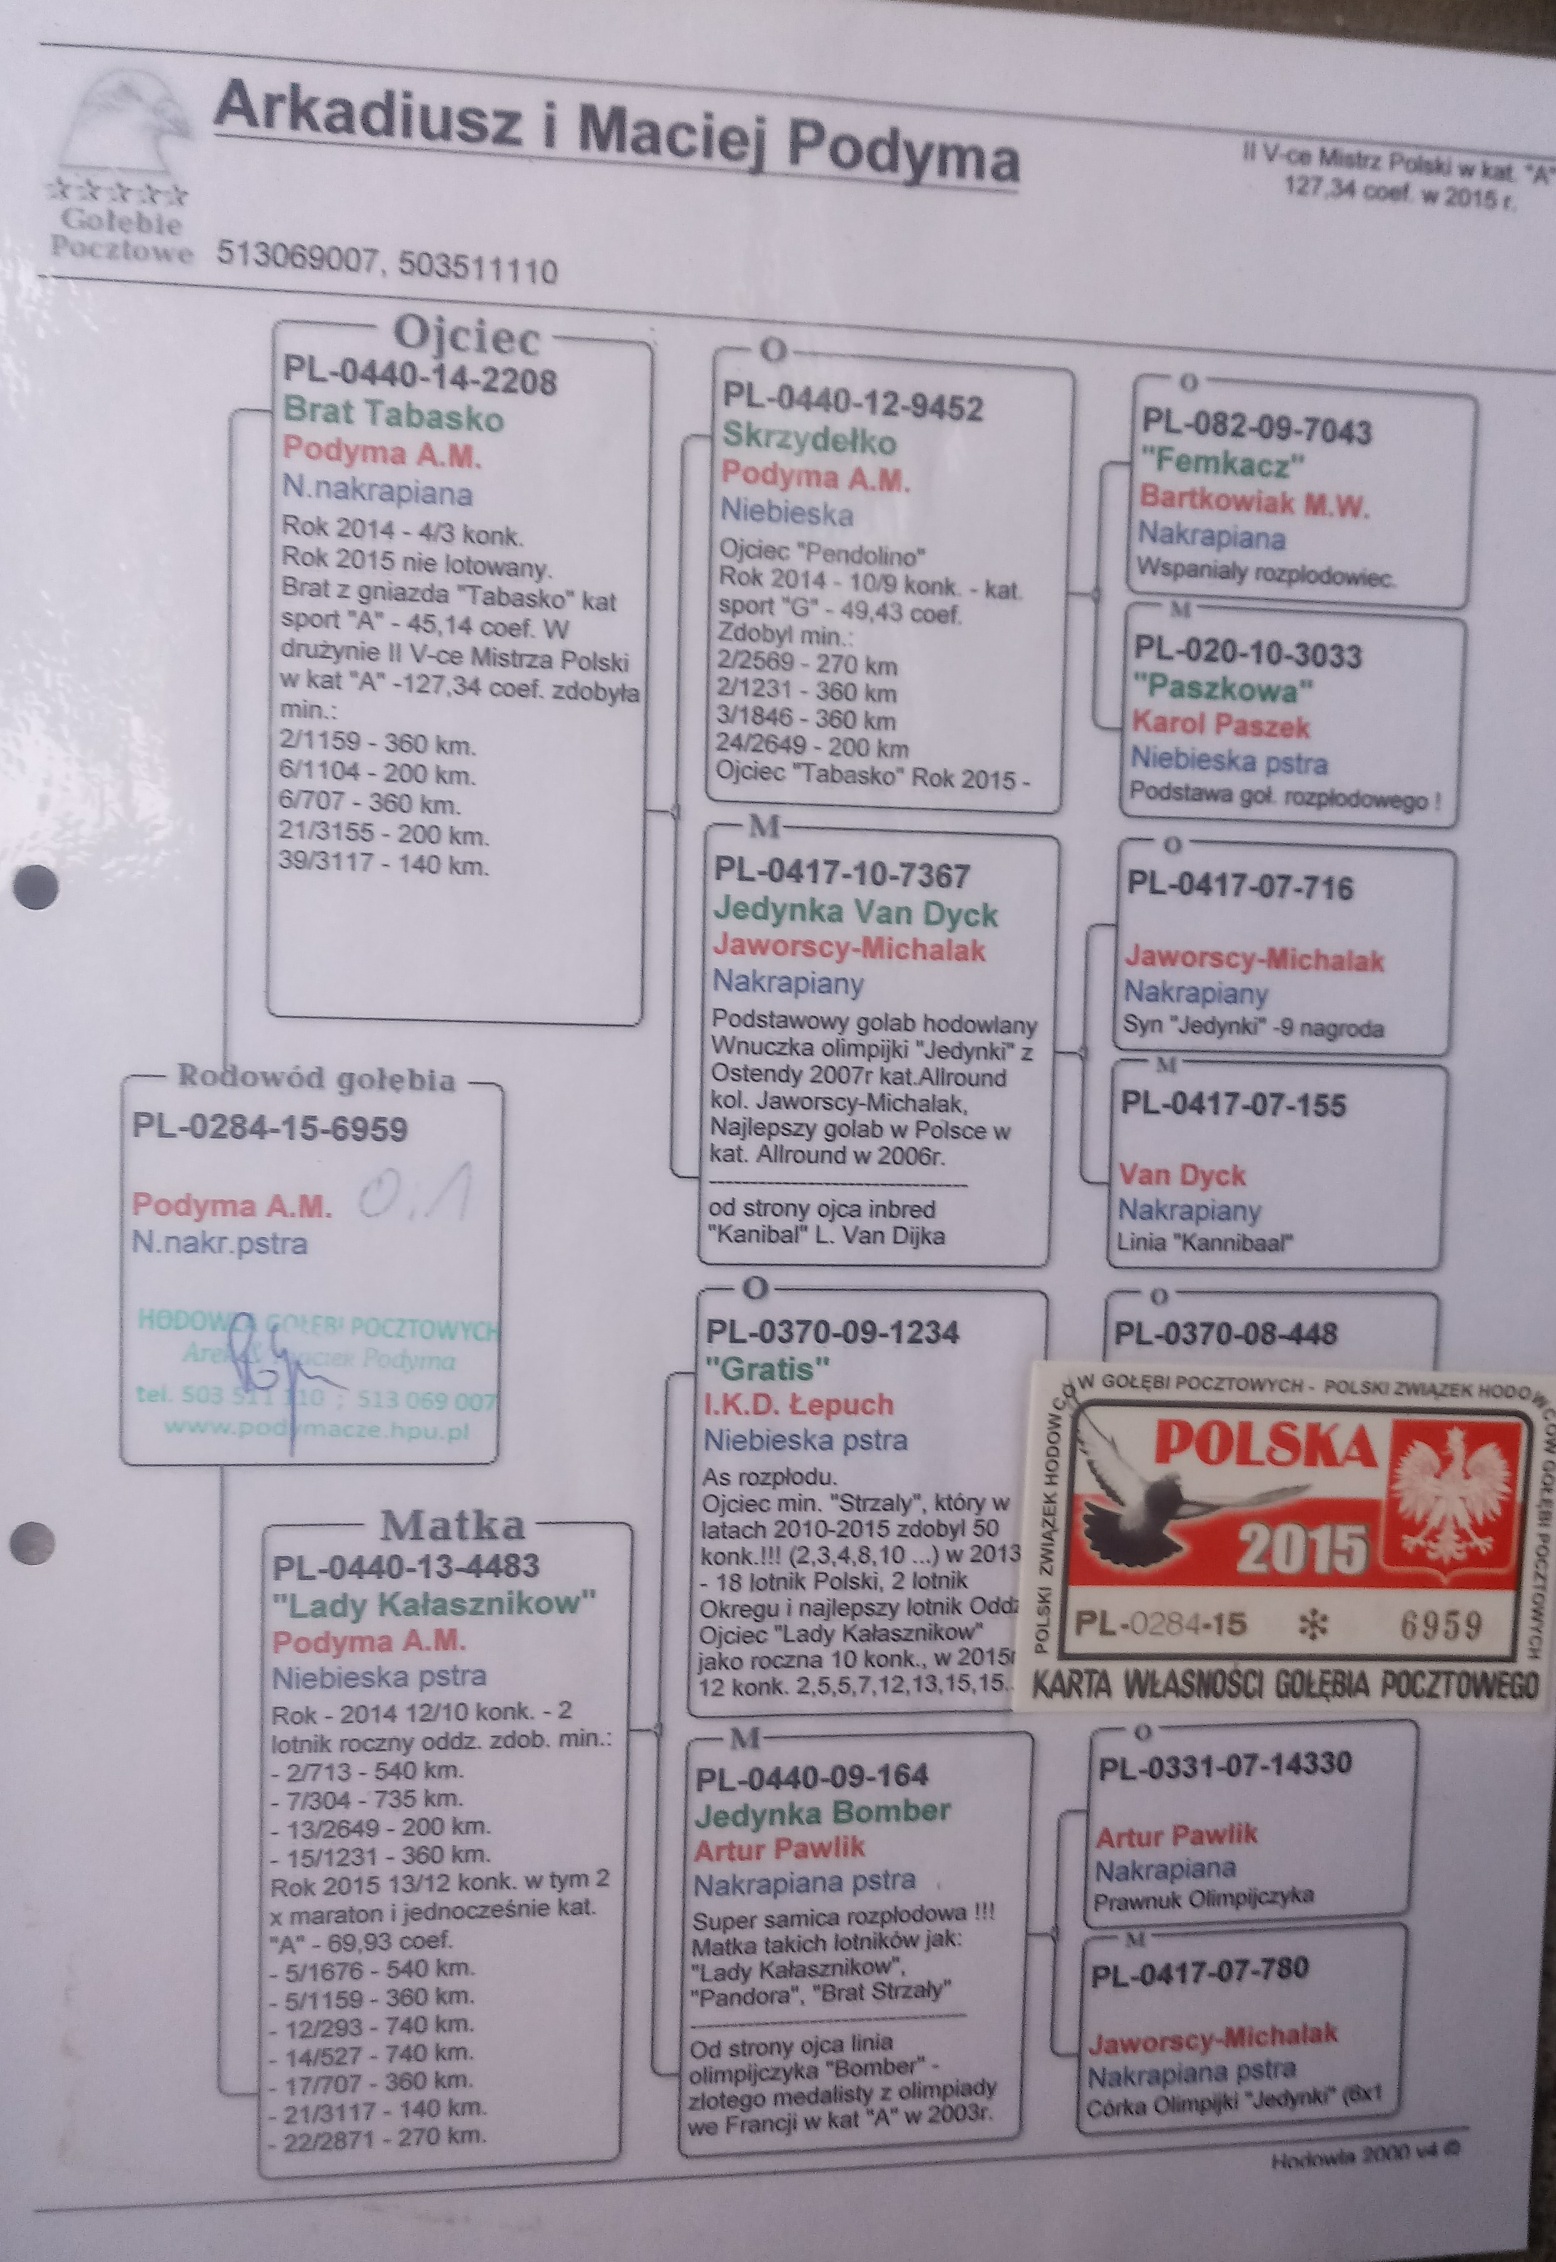 Arkadiusz i Maciej Podyma
II V-ce Mistrz Polski w kat. "A"
127,34 coef. w 2015 r.
Gołębie
Pocztowe
513069007, 503511110
Ojciec
PL-0440-14-2208
Brat Tabasko
Podyma A.M.
N.nakrapiana
Rok 2014 - 4/3 konk.
Rok 2015 nie lotowany.
Brat z gniazda "Tabasko" kat
sport "A" - 45,14 coef. W
drużynie II V-ce Mistrza Polski
w kat "A" -127,34 coef. zdobyła
min.:
2/1159 - 360 km.
6/1104 - 200 km.
6/707 - 360 km.
21/3155 - 200 km.
39/3117 - 140 km.
O
PL-0440-12-9452
Skrzydełko
Podyma A.M.
Niebieska
Ojciec "Pendolino"
Rok 2014 - 10/9 konk. - kat.
sport "G" - 49,43 coef.
Zdobyl min.:
2/2569 - 270 km
2/1231 - 360 km
3/1846 - 360 km
24/2649 - 200 km
Ojciec "Tabasko" Rok 2015 -
O
PL-082-09-7043
"Femkacz"
Bartkowiak M.W.
Nakrapiana
Wspanialy rozplodowiec.
M
PL-020-10-3033
"Paszkowa"
Karol Paszek
Niebieska pstra
Podstawa goł. rozpłodowego !
M
PL-0417-10-7367
Jedynka Van Dyck
Jaworscy-Michalak
Nakrapiany
Podstawowy golab hodowlany
Wnuczka olimpijki "Jedynki" z
Ostendy 2007r kat.Allround
kol. Jaworscy-Michalak,
Najlepszy golab w Polsce w
kat. Allround w 2006r.
------------------------------
od strony ojca inbred
"Kanibal" L. Van Dijka
O
PL-0417-07-716
Jaworscy-Michalak
Nakrapiany
Syn "Jedynki" -9 nagroda
M
PL-0417-07-155
Van Dyck
Nakrapiany
Linia "Kannibaal"
Rodowód gołębia
PL-0284-15-6959
Podyma A.M. 0,1
N.nakr.pstra
HODOWLA GOŁĘBI POCZTOWYCH
Arek & Maciek Podyma
tel. 503 511 110 ; 513 069 007
www.podymacze.hpu.pl
Matka
PL-0440-13-4483
"Lady Kałasznikow"
Podyma A.M.
Niebieska pstra
Rok - 2014 12/10 konk. - 2
lotnik roczny oddz. zdob. min.:
- 2/713 - 540 km.
- 7/304 - 735 km.
- 13/2649 - 200 km.
- 15/1231 - 360 km.
Rok 2015 13/12 konk. w tym 2
x maraton i jednocześnie kat.
"A" - 69,93 coef.
- 5/1676 - 540 km.
- 5/1159 - 360 km.
- 12/293 - 740 km.
- 14/527 - 740 km.
- 17/707 - 360 km.
- 21/3117 - 140 km.
- 22/2871 - 270 km.
O
PL-0370-09-1234
"Gratis"
I.K.D. Łepuch
Niebieska pstra
As rozpłodu.
Ojciec min. "Strzaly", który w
latach 2010-2015 zdobyl 50
konk.!!! (2,3,4,8,10 ...) w 2013
- 18 lotnik Polski, 2 lotnik
Okregu i najlepszy lotnik Oddz
Ojciec "Lady Kałasznikow"
jako roczna 10 konk., w 2015r
12 konk. 2,5,5,7,12,13,15,15.
O
PL-0370-08-448
POLSKI ZWIĄZEK HODOWCÓW GOŁĘBI POCZTOWYCH - POLSKI ZWIĄZEK HODOWCÓW GOŁĘBI POCZTOWYCH
POLSKA
2015
PL-0284-15 * 6959
KARTA WŁASNOŚCI GOŁĘBIA POCZTOWEGO
M
PL-0440-09-164
Jedynka Bomber
Artur Pawlik
Nakrapiana pstra
Super samica rozpłodowa !!!
Matka takich lotników jak:
"Lady Kałasznikow",
"Pandora", "Brat Strzały"
------------------------------
Od strony ojca linia
olimpijczyka "Bomber" -
zlotego medalisty z olimpiady
we Francji w kat "A" w 2003r.
O
PL-0331-07-14330
Artur Pawlik
Nakrapiana
Prawnuk Olimpijczyka
M
PL-0417-07-780
Jaworscy-Michalak
Nakrapiana pstra
Córka Olimpijki "Jedynki" (6x1
Hodowla 2000 v4 ©